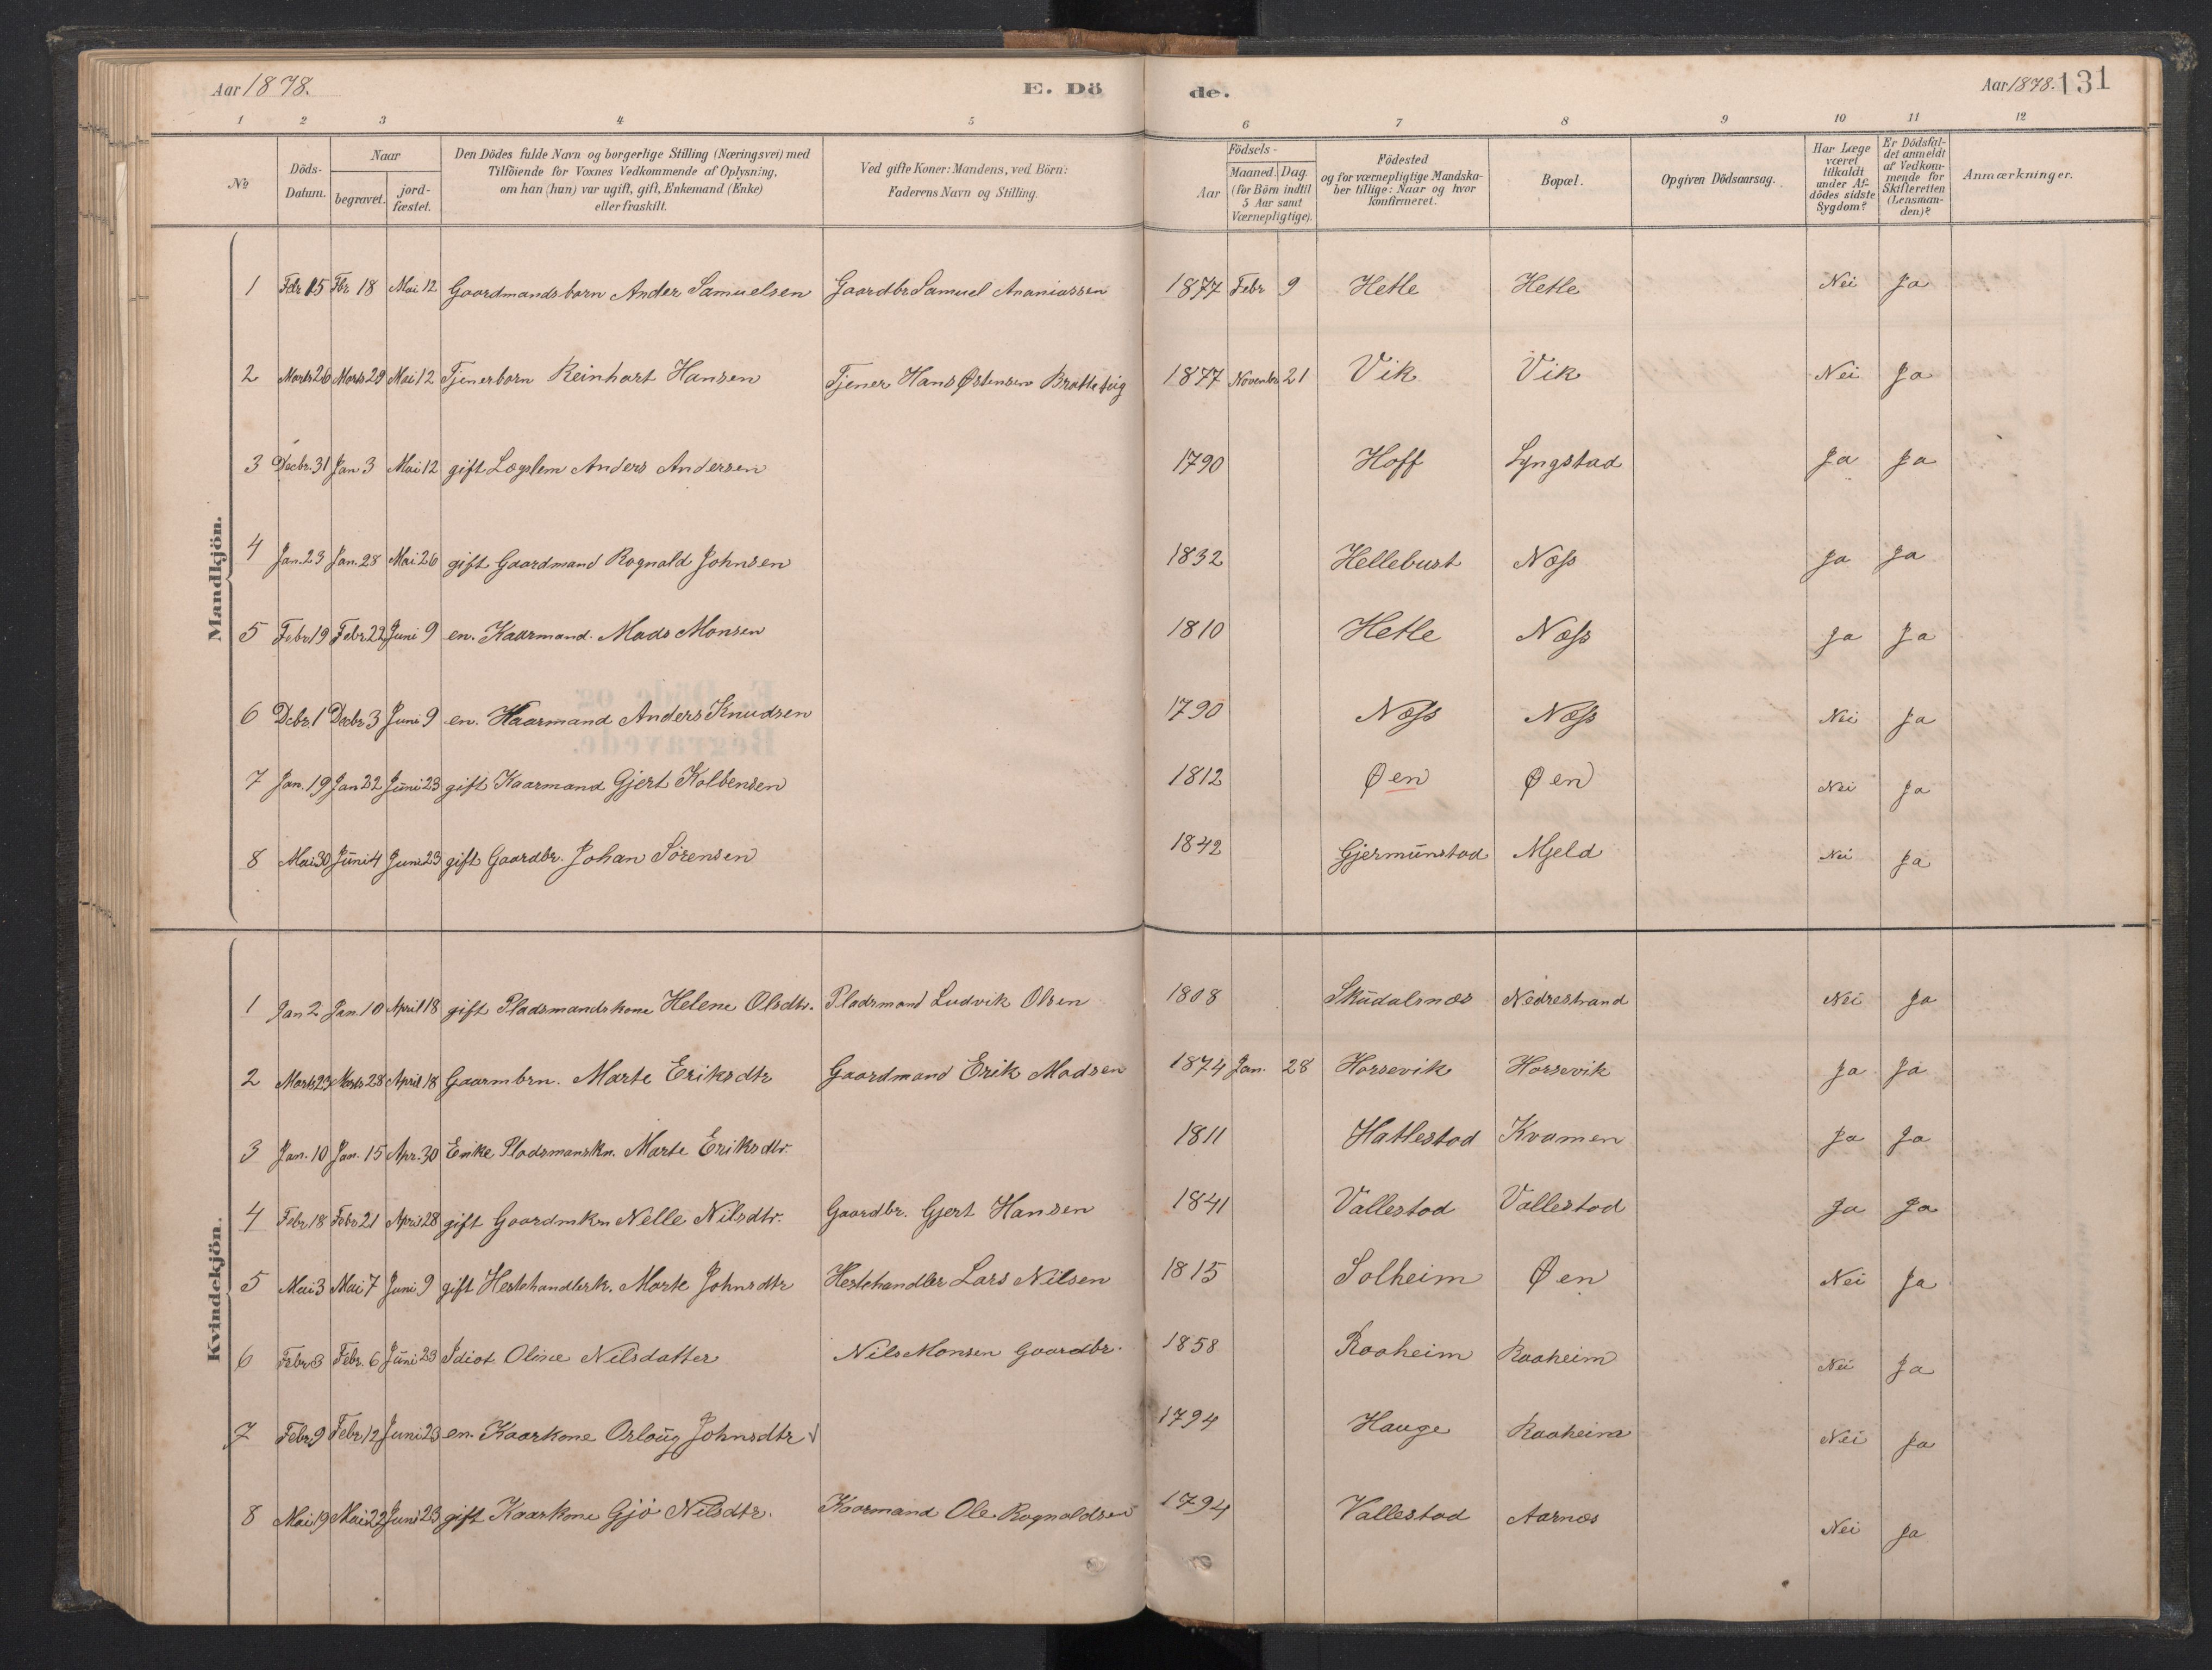 Aar 1878. E. Dö de. Aar 1878. 131
1 2 3 4 5 6 7 8 9 10 11 12
No
Döds-Datum.
Naar
begravet. jord-fæstet.
Den Dödes fulde Navn og borgerlige Stilling (Næringsvei) med
Tilföiende for Voxnes Vedkommende af Oplysning,
om han (hun) var ugift, gift, Enkemand (Enke)
eller fraskilt.
Ved gifte Koner: Mandens, ved Börn:
Faderens Navn og Stilling.
Födsels-
Aar Maaned. Dag.
(for Börn indtil
5 Aar samt
Værnepligtige).
Födested
og for værnepligtige Mandska-
ber tillige: Naar og hvor
konfirmeret.
Bopæl.
Opgiven Dödsaarsag.
Har Læge
været
tilkaldt
under Af-
dödes sidste
Sygdom?
Er Dödsfal-
det anmeldt
af Vedkom-
mende for
Skifteretten
(Lensman-
den)?
Anmærkninger.
Mandkjön.
1 Febr 15 Fbr 18 Mai 12 Gaardmandsbarn Ander Samuelsen Gaardbr Samuel Ananiassen 1877 Febr 9 Hetle Hetle Nei Ja
2 Marts 26 Marts 29 Mai 12 Tjenerbarn Reinhart Hansen Tjener Hans Østensen Bratteteig 1877 Novembr 21 Vik Vik Nei Ja
3 Decbr. 31 Jan 3 Mai 12 gift Lægslem Anders Andersen 1790 Hoff Lyngstad Ja Ja
4 Jan. 23 Jan. 28 Mai 26 gift Gaardmand Rognald Johnsen 1832 Hellebust Næss Ja Ja
5 Febr 19 Febr 22 Juni 9 en. Kaarmand. Mads Monsen 1810 Hetle Næss Ja Ja
6 Dcbr. 1 Decbr 3 Juni 9 en. Kaarmand Anders Knudsen 1790 Næss Næss Nei Ja
7 Jan. 19 Jan 22 Juni 23 gift Kaarmand Gjert Kolbensen 1812 Øen Øen Nei Ja
8 Mai 30 Juni 4 Juni 23 gift Gaardbr. Johan Sørensen 1842 Gjermunstad Mjeld Nei Ja
Kvindekjön.
1 Jan 2 Jan. 10 April 18 gift Pladsmandskone Helene Olsdtr. Pladsmand Ludvik Olsen 1808 Skudalsnæs Nedrestrand Nei Ja
2 Marts 23 Marts 28 April 18 Gaarmbrn. Marte Eriksdtr Gaardmand Erik Madsen 1874 Jan. 28 Horsevik Horsevik Ja Ja
3 Jan. 10 Jan. 15 Apr. 30 Enke Pladsmanskn. Marte Eriksdtr. 1811 Hatlestad Kvamen Ja Ja
4 Febr 18 Febr 21 April 28 gift Gaardmkn Nelle Nilsdtr. Gaardbr. Gjert Hansen 1841 Vallestad Vallestad Ja Ja
5 Mai 3 Mai 7 Juni 9 gift Hestehandlerk. Marte Johnsdtr Hestehandler Lars Nilsen 1815 Solheim Øen Nei Ja
6 Febr 3 Febr. 6 Juni 23 Idiot Oline Nilsdatter Nils Monsen Gaardbr. 1858 Raaheim Raaheim Nei Ja
7 Febr. 9 Febr. 12 Juni 23 en. Kaarkone Orlaug Johnsdtr 1794 Hauge Raaheim Nei Ja
8 Mai 19 Mai 22 Juni 23 gift Kaarkone Gjö Nilsdtr. Kaarmand Ole Rognaldsen 1794 Vallestad Aarnæs Nei Ja